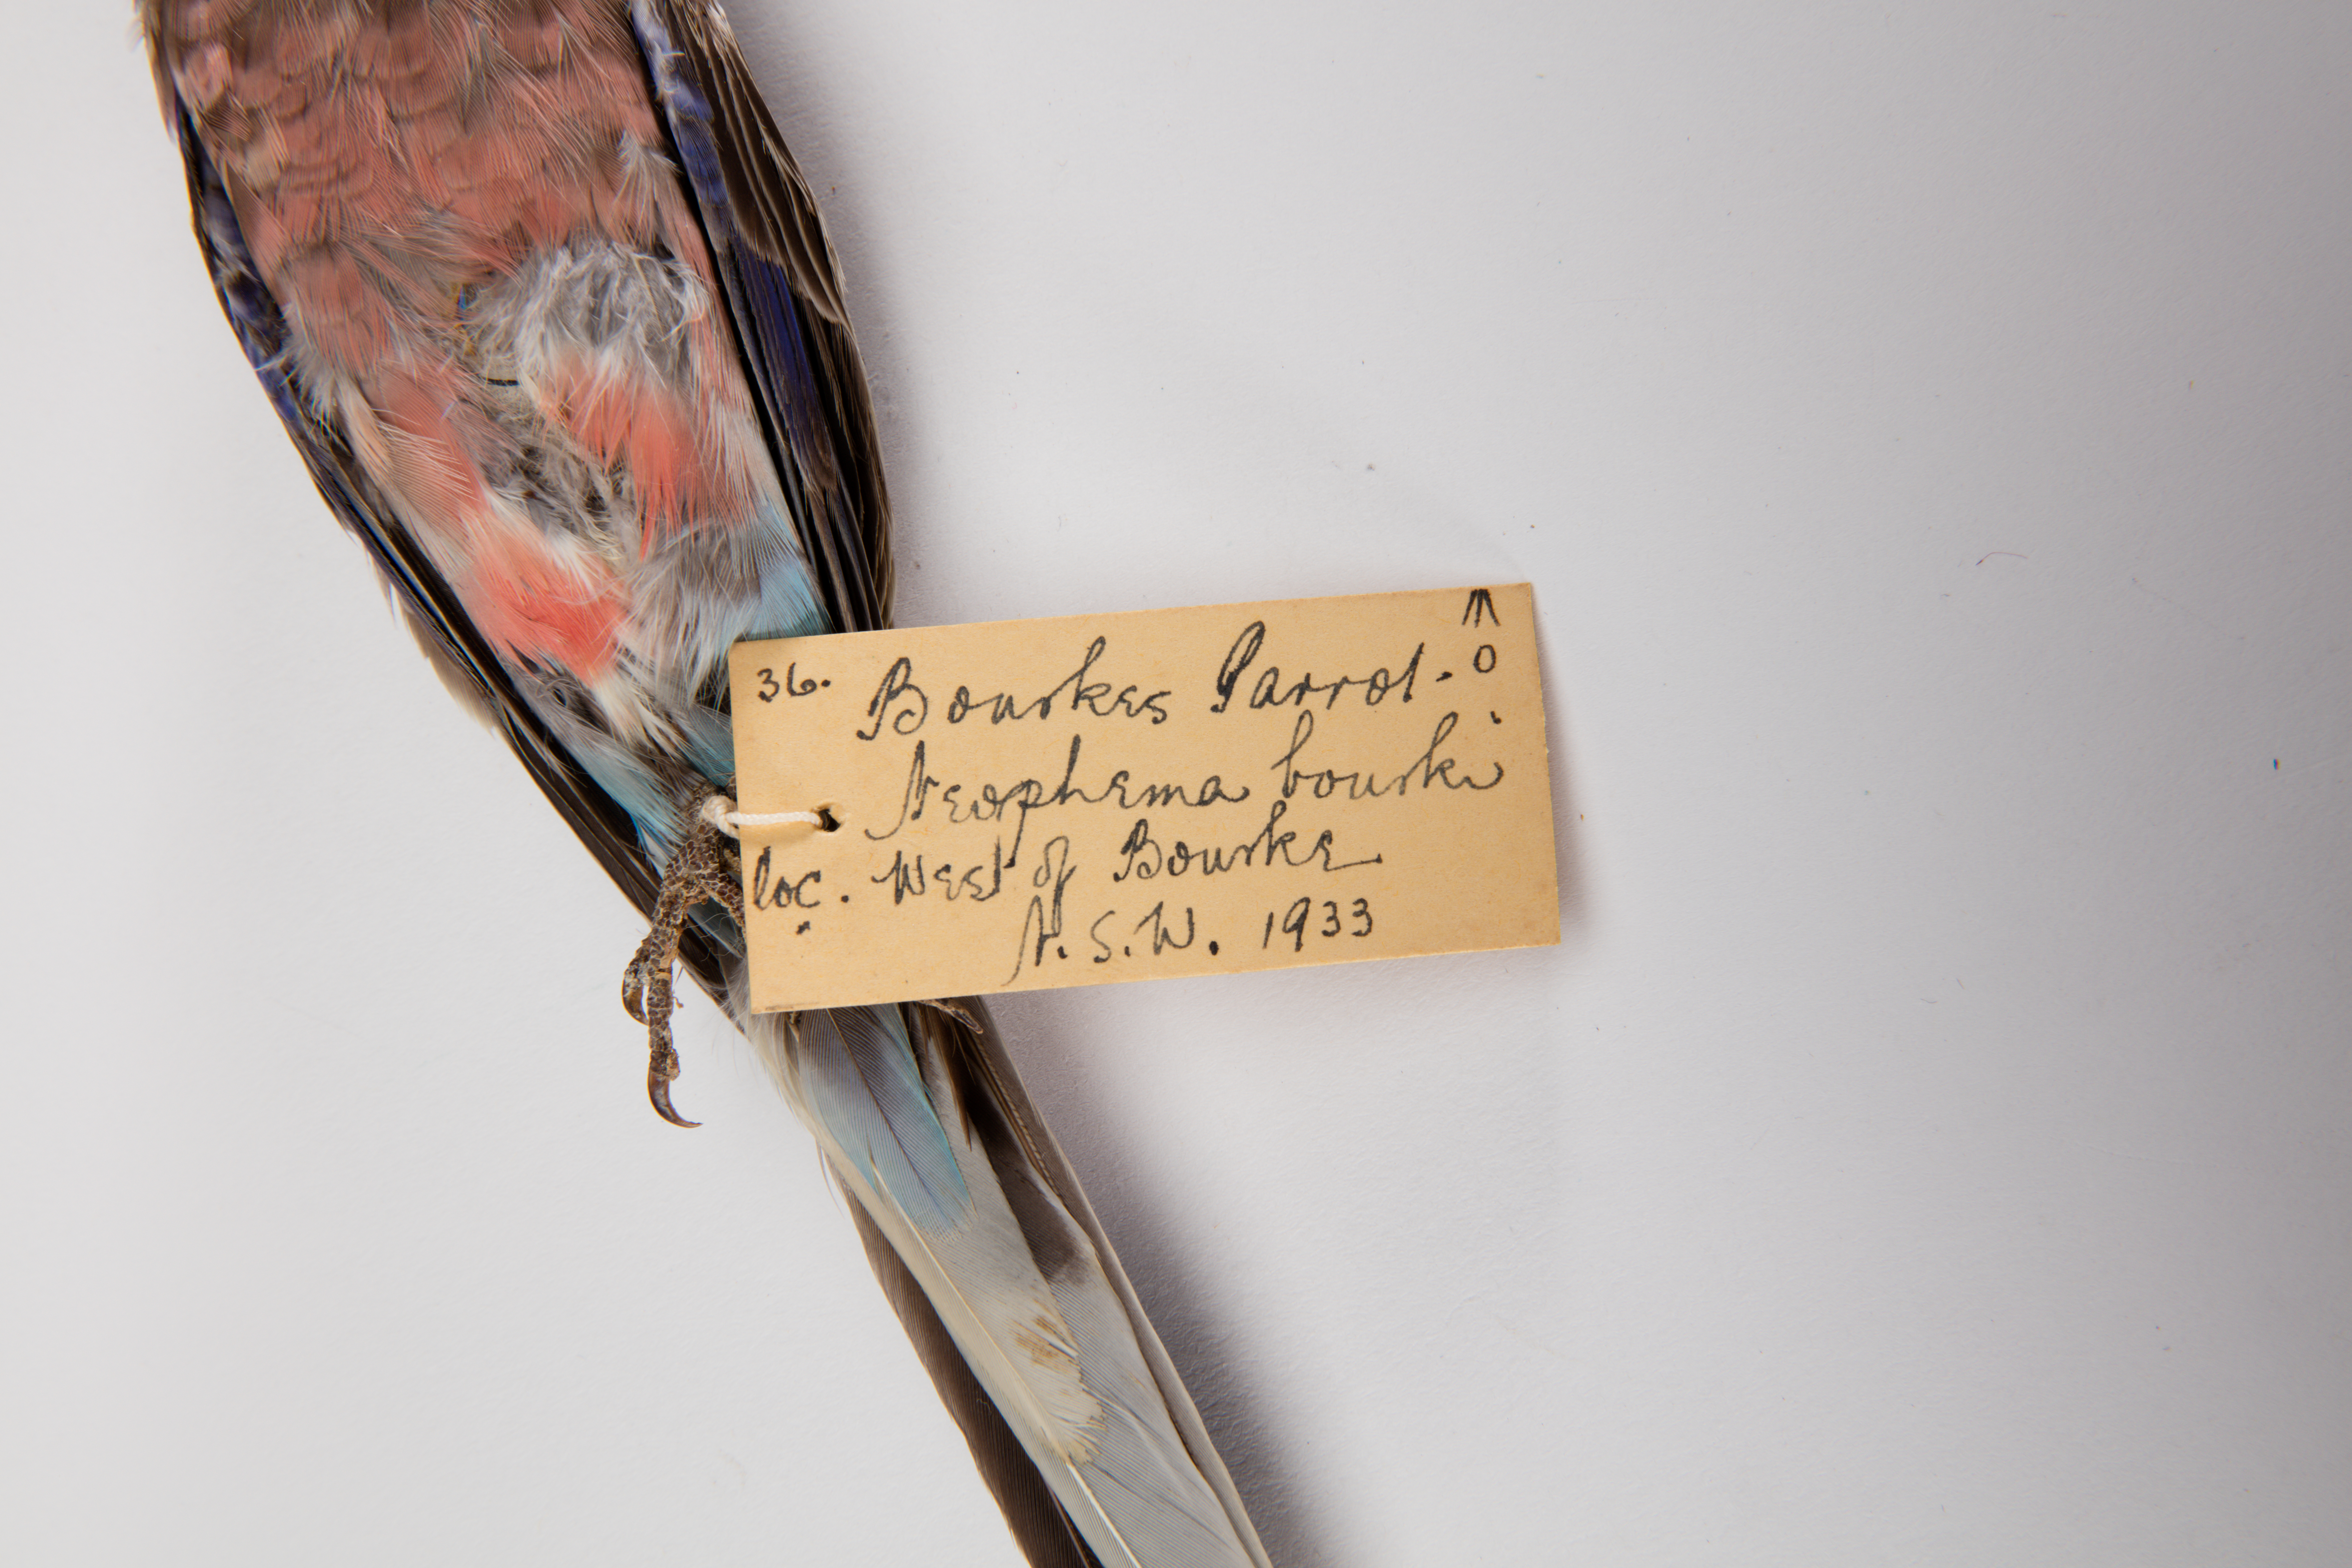 36. Bourkes Parrot. ♂
Neophema bourki
loc. West of Bourke
N.S.W. 1933